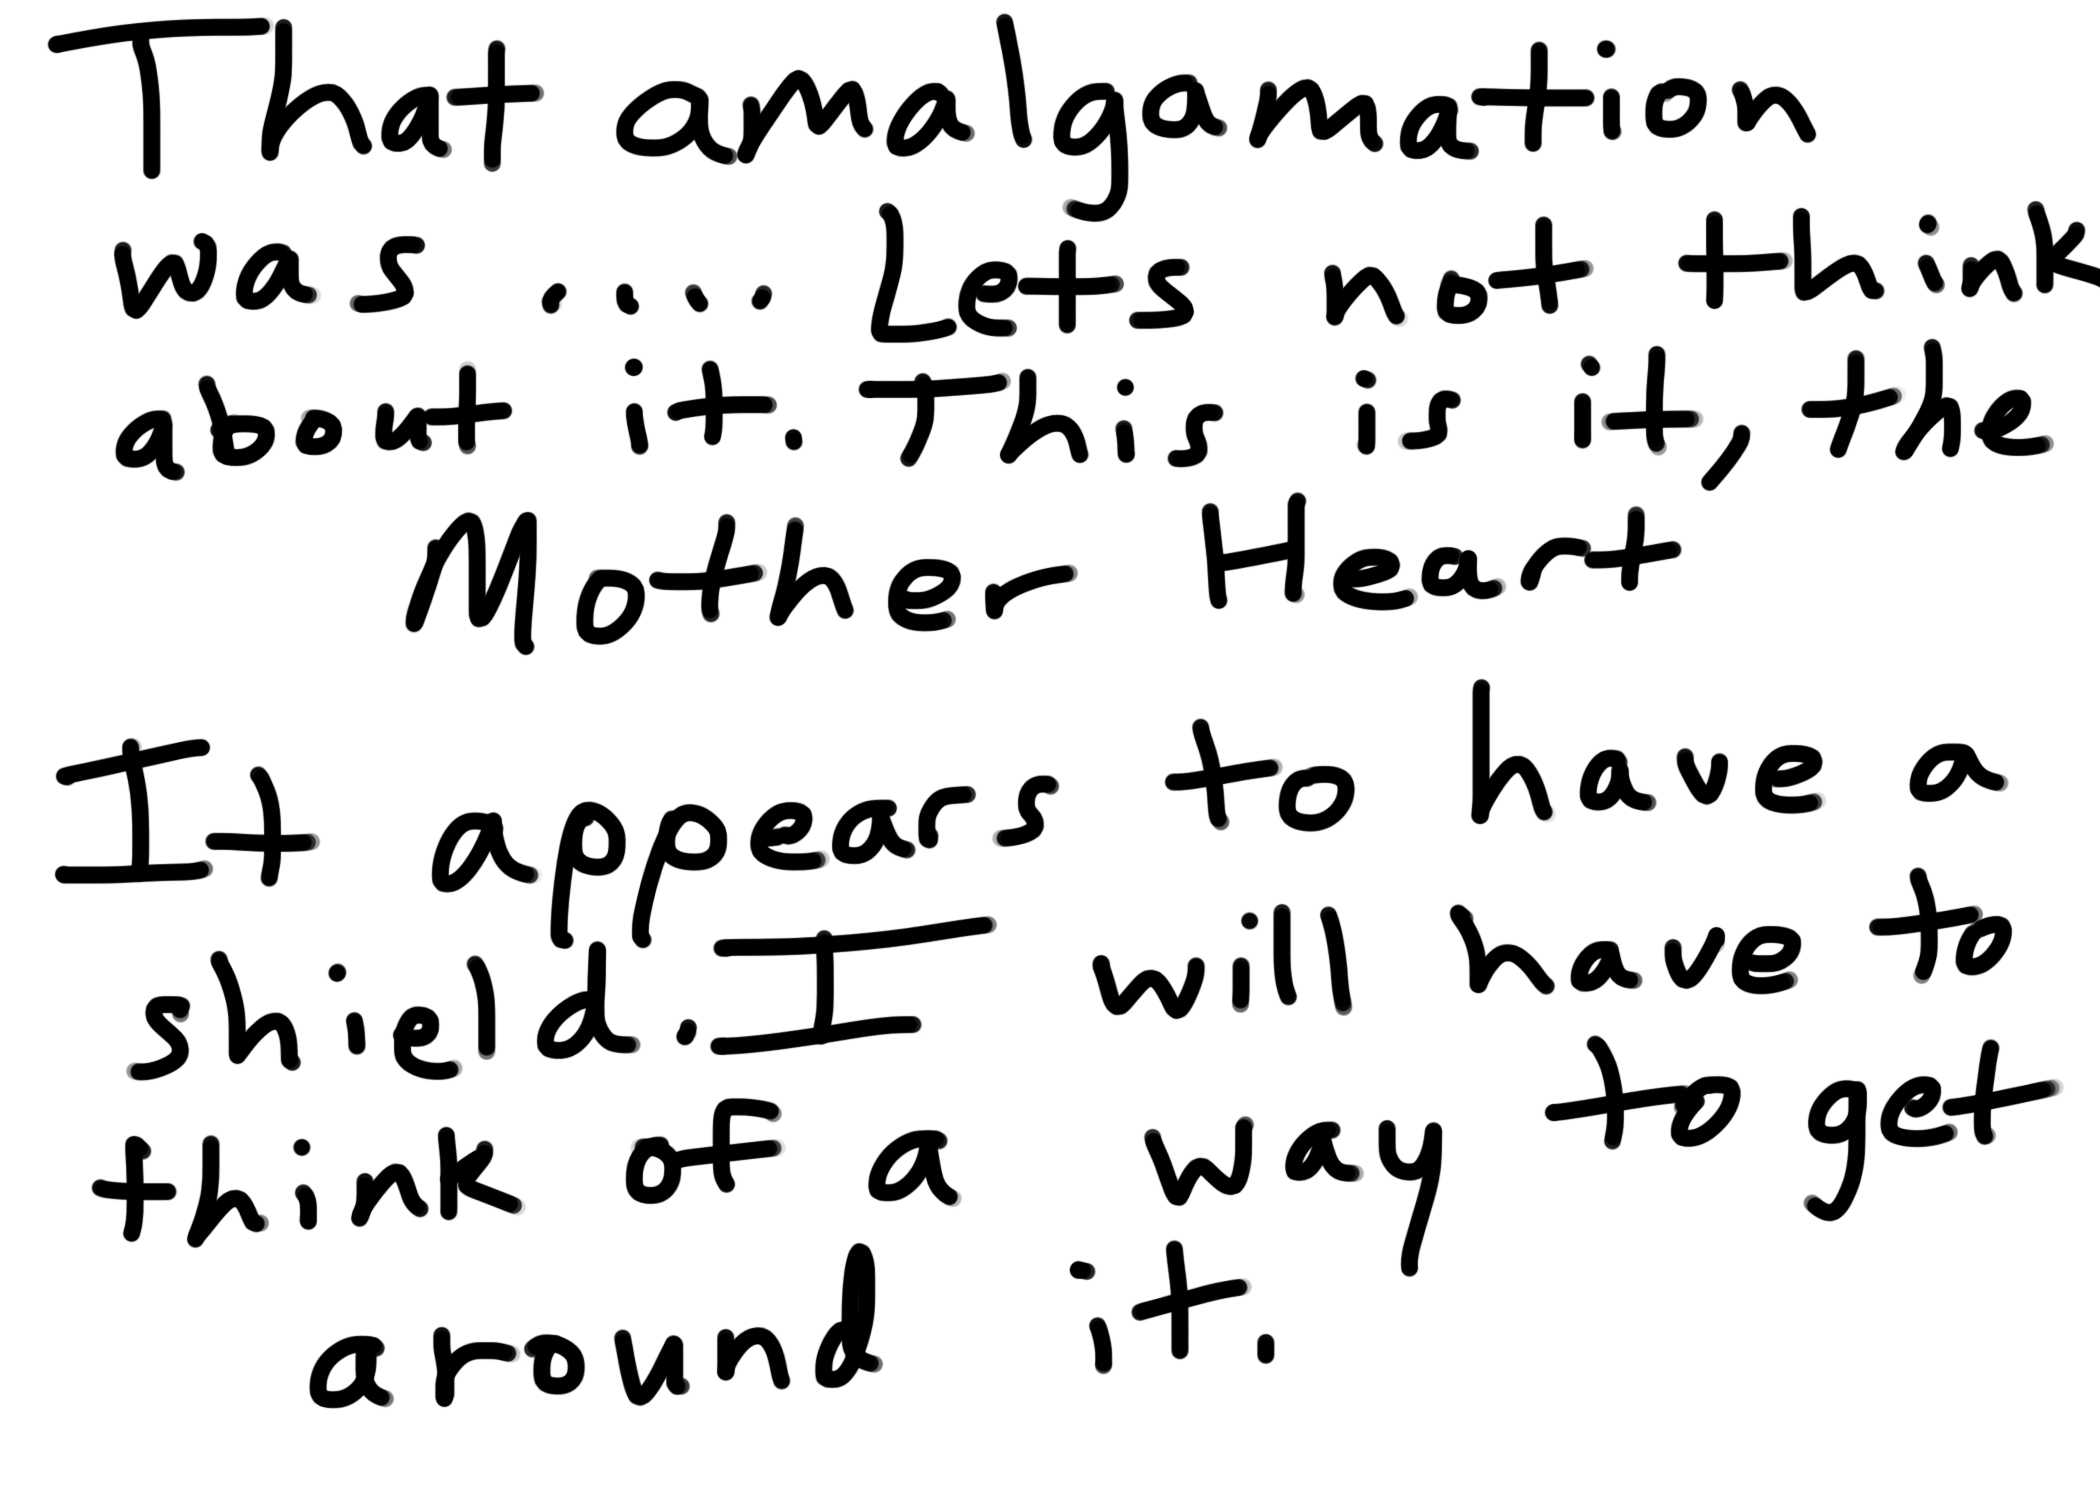 That amalgamation
was .... Lets not think
about it. This is it, the
Mother Heart
It appears to have a
shield. I will have to
think of a way to get
around it.